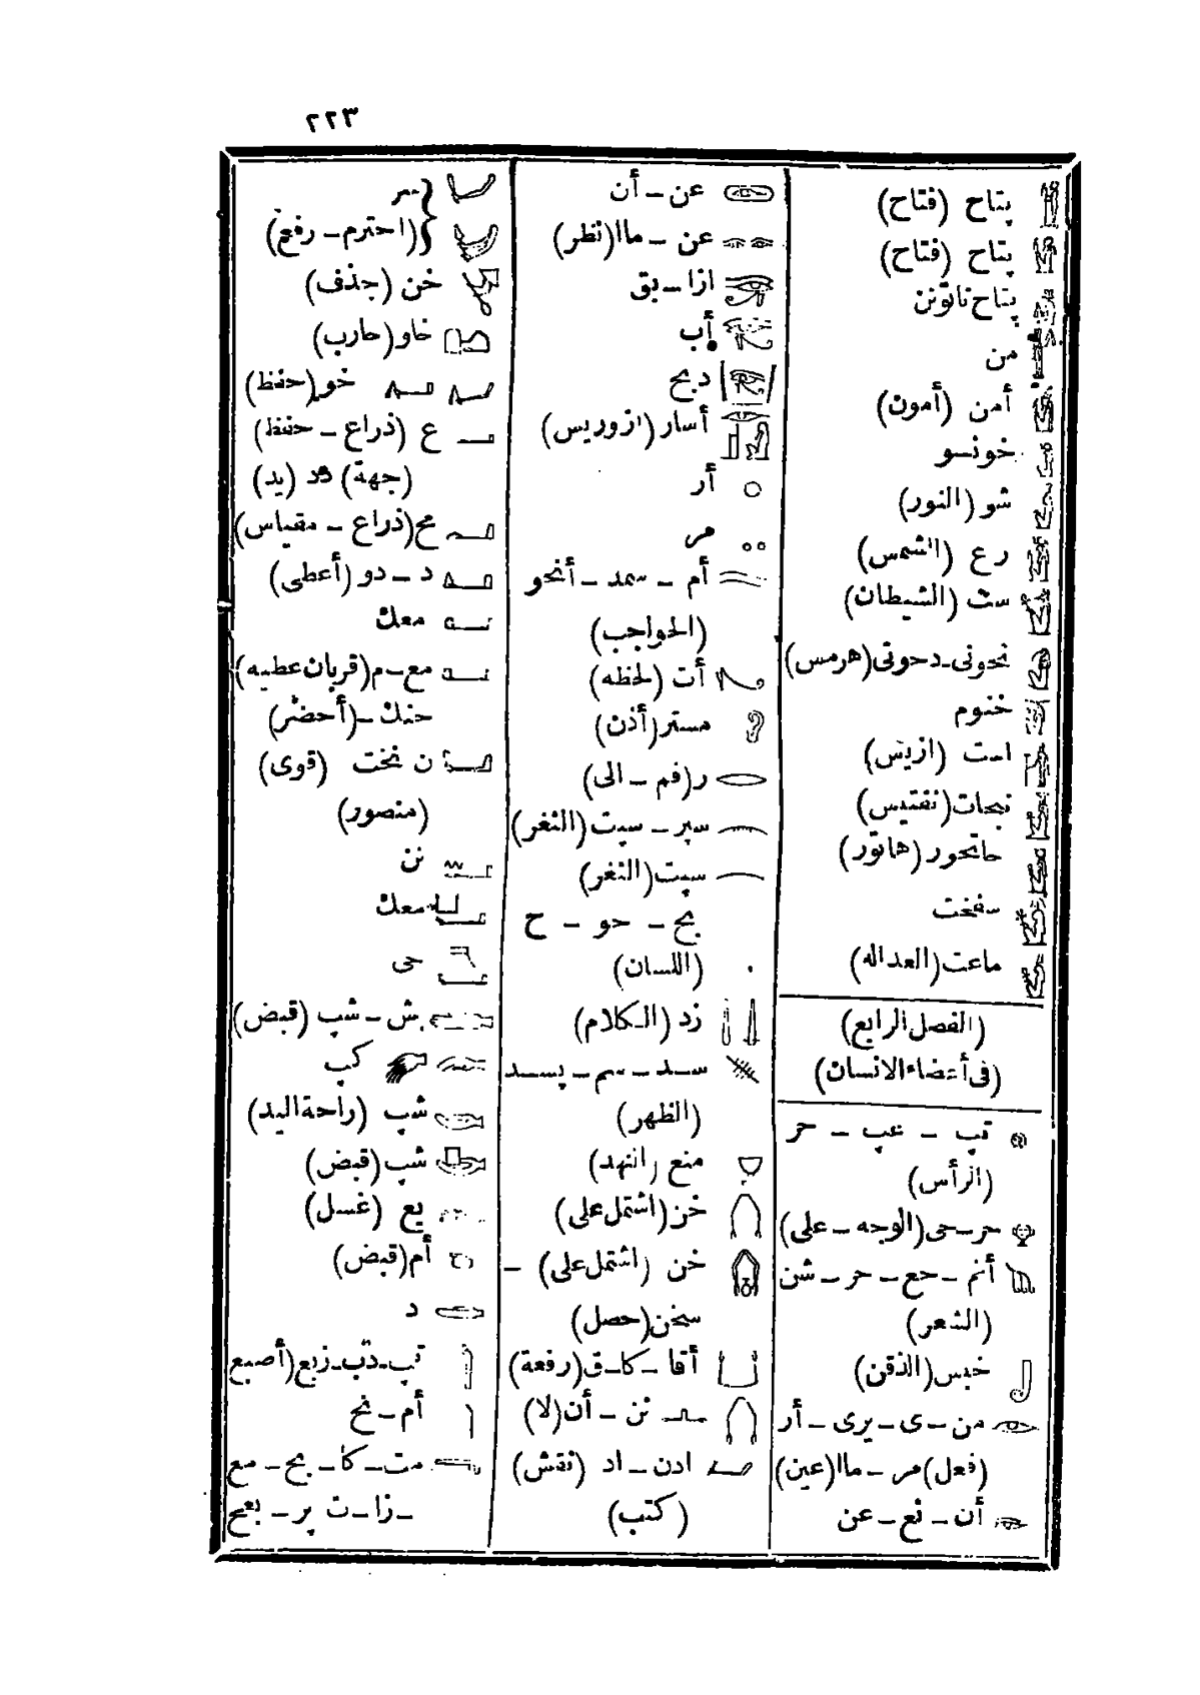 ٢٢٣
پتاح (فتاح)
پتاح (فتاح)
پتاح تاتونن
من
أمن (أمون)
خونسو
شو (النور)
رع (الشمس)
ست (الشيطان)
تحوتى-دحوتى (هرمس)
خنوم
است (ازيس)
نبحات (نفتيس)
حاتحور (هاتور)
سفخت
ماعت (العداله)
(الفصل الرابع)
(فى أعضاء الانسان)
تپ - عپ - حر
(الرأس)
حر-حى (الوجه - على)
أنم - حع - حر - شن
(الشعر)
خبس (الذقن)
من - ى - يرى - أر
(فعل) مر - ماا (عين)
أن - نع - عن
عن - أن
عن - ماا (نظر)
ازا - بق
أب
دبح
أسار (ازوريس)
أر
مر
أم - سمد - أنحو
(الحواجب)
أت (لحظه)
مستر (أذن)
ر (فم - الى)
سپر - سپت (الثغر)
سپت (الثغر)
بح - حو - ح
(اللسان)
زد (الكلام)
سد - سم - پسد
(الظهر)
منع (النهد)
خن (اشتمل على)
خن (اشتمل على) -
سخن (حصل)
أقا - كا - ق (رفعة)
نن - أن (لا)
ادن - اد (نقش)
(كتب)
سر
(احترم - رفع)
خن (جذف)
خاو (حارب)
خو (حفظ)
ع (ذراع - حفظ)
(جهة) (يد)
مح (ذراع - مقياس)
د - دو (أعطى)
معك
مع - م (قربان عطيه)
حنك - (أحضر)
ن نخت (قوى)
(منصور)
نن
معك
حى
ش - شپ (قبض)
كپ
شپ (راحة اليد)
شپ (قبض)
يع (غسل)
أم (قبض)
د
تپ - دب - زبع (أصبع
أم - نح
مت - كا - بح - مع
- زا - ت پر - بعح